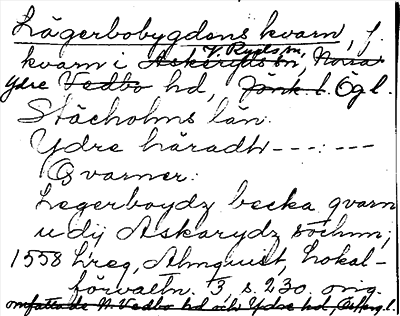 Lägerbobygdens kvarn, f.
V. Ryds sn,
kvarn i Askeryds sn, Norra
Ydre Vedbo hd, Jönk. l. Ögl.
Stächolms län:
Ydre häradh - - - : - - -
Qvarner:
Legerboydz becka qvarn
udij Askarydz sochnn;
1558 Lreg, Almquist, Lokal-
förvaltn. 3, s. 230. orig.
omfattade N. Vedbo hd och Ydre hd, Östergl.